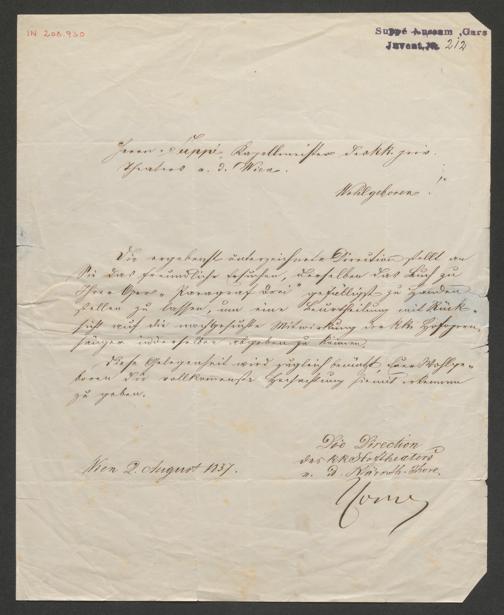 IN 208.930
Suppé Museum, Gars
Invent. Nr. 212
Herrn v Suppé, Kapellmeister des kk. priv.
Theaters a. d. Wien.
Wohlgeboren.
Die ergebenst unterzeichnete Direction stellt an
Sie das freundliche Ersuchen, derselben das Buch zu
Ihrer Oper "Paragraf drei" gefälligst zu Handen
stellen zu lassen, um eine Beurtheilung mit Rück-
sicht auf die nachgesuchte Mitwirkung der kk. Hofopern-
sänger in derselben abgeben zu können.
Diese Gelegenheit wird zugleich benützt, Euer Wohlge-
boren die vollkommenste Hochachtung hiemit erkennen
zu geben.
Wien 2. August 1857.
Die Direction
des kk Hoftheaters
a. d. Kärnth. Thore.